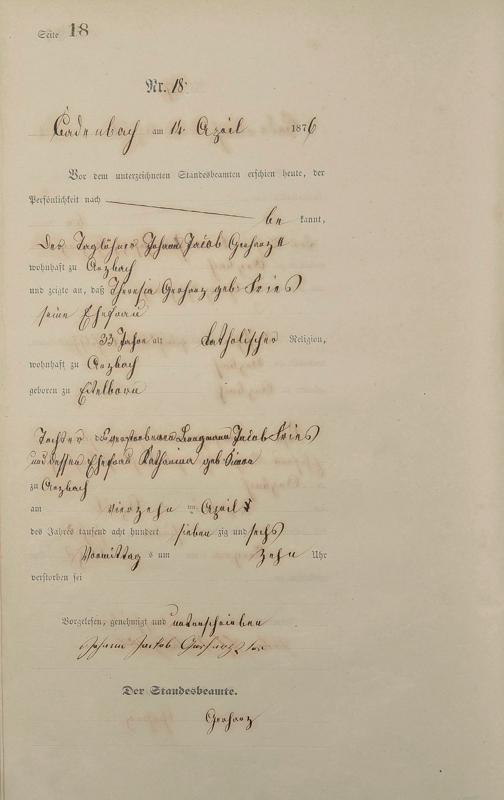 Seite 18
Nr. 18
Cadenbach am 14 April 1876
Vor dem unterzeichneten Standesbeamten erschien heute, der
Persönlichkeit nach
be kannt,
Der Taglöhner Johann Jacob Gerharz II
wohnhaft zu Arzbach
und zeigte an, daß Theresia Gerharz geb. Fries
seine Ehefrau
33 Jahre alt Katholischer Religion,
wohnhaft zu Arzbach
geboren zu Eitelborn
Tochter des verstorbenen Bergmann Jacob Fries
und dessen Ehefrau Katharina geb
zu Arzbach
am vierzehn ten April
des Jahres tausend acht hundert sieben zig und sechs
Vormittag s um zehn Uhr
verstorben sei
Vorgelesen, genehmigt und unterschrieben
Johann Jacob Gerharz
Der Standesbeamte.
Gerharz